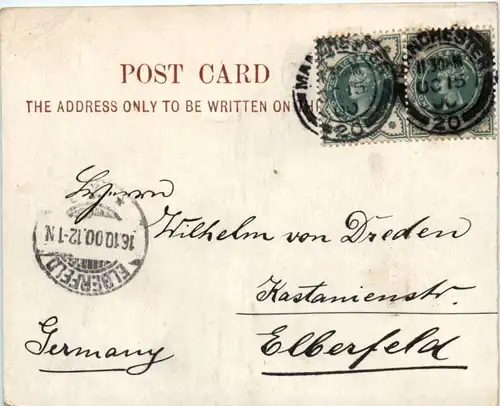 POST CARD
THE ADDRESS ONLY TO BE WRITTEN ON
MANCHESTER
OC 15
00
20
MANCHESTER
OC 15
00
20
Herrn
Wilhelm von Dreden
Kastanienstr.
Elberfeld
Germany
ELBERFELD
16.10.00.12-1N